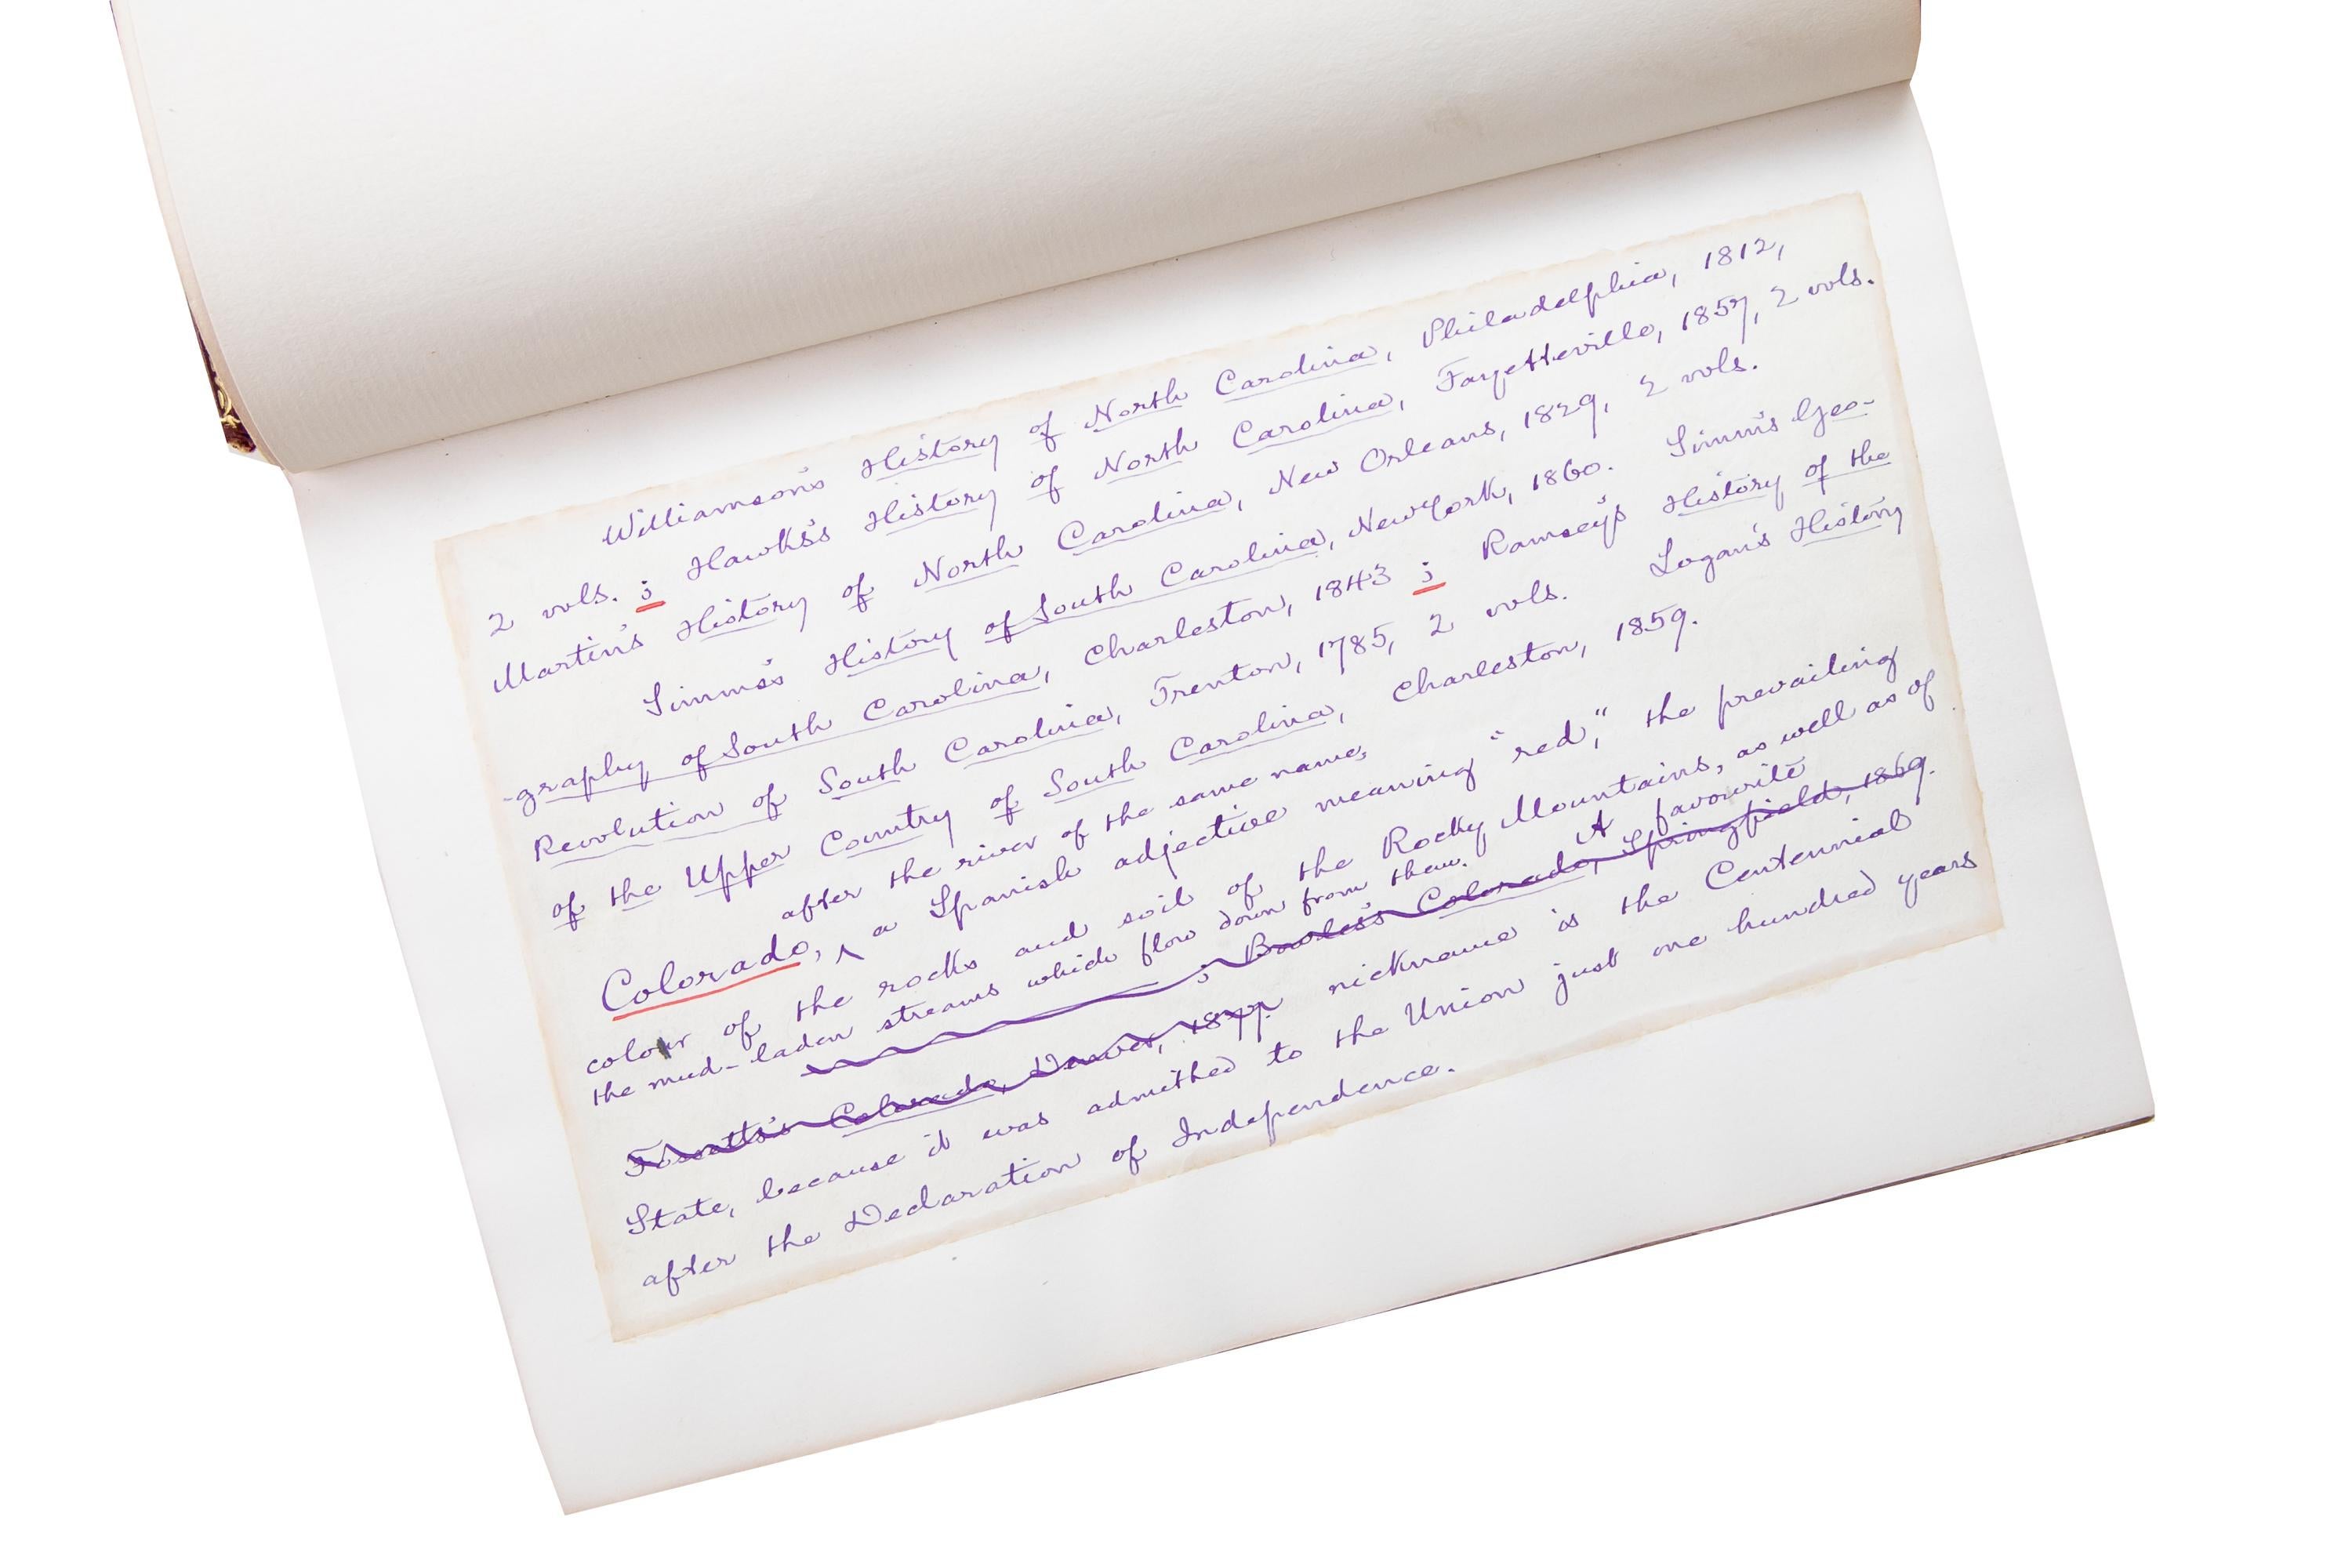 Williamson's History of North Carolina, Philadelphia, 1812,
2 vols. ; Hawks's History of North Carolina, Fayetteville, 1857, 2 vols.
Martin's History of North Carolina, New Orleans, 1829, 2 vols.
Simms's History of South Carolina, New York, 1860. Simm's Geo-
-graphy of South Carolina, Charleston, 1843 ; Ramsey's History of the
Revolution of South Carolina, Trenton, 1785, 2 vols. Logan's History
of the Upper Country of South Carolina, Charleston, 1859.
after the river of the same name,
Colorado, ^ a Spanish adjective meaning "red," the prevailing
colour of the rocks and soil of the Rocky Mountains, as well as of
the mud-laden streams which flow down from them. A favourite
; Bowles's Colorado, Springfield, 1869.
Fossett's Colorado, Denver, 1877. nickname is the Centennial
State, because it was admitted to the Union just one hundred years
after the Declaration of Independence.